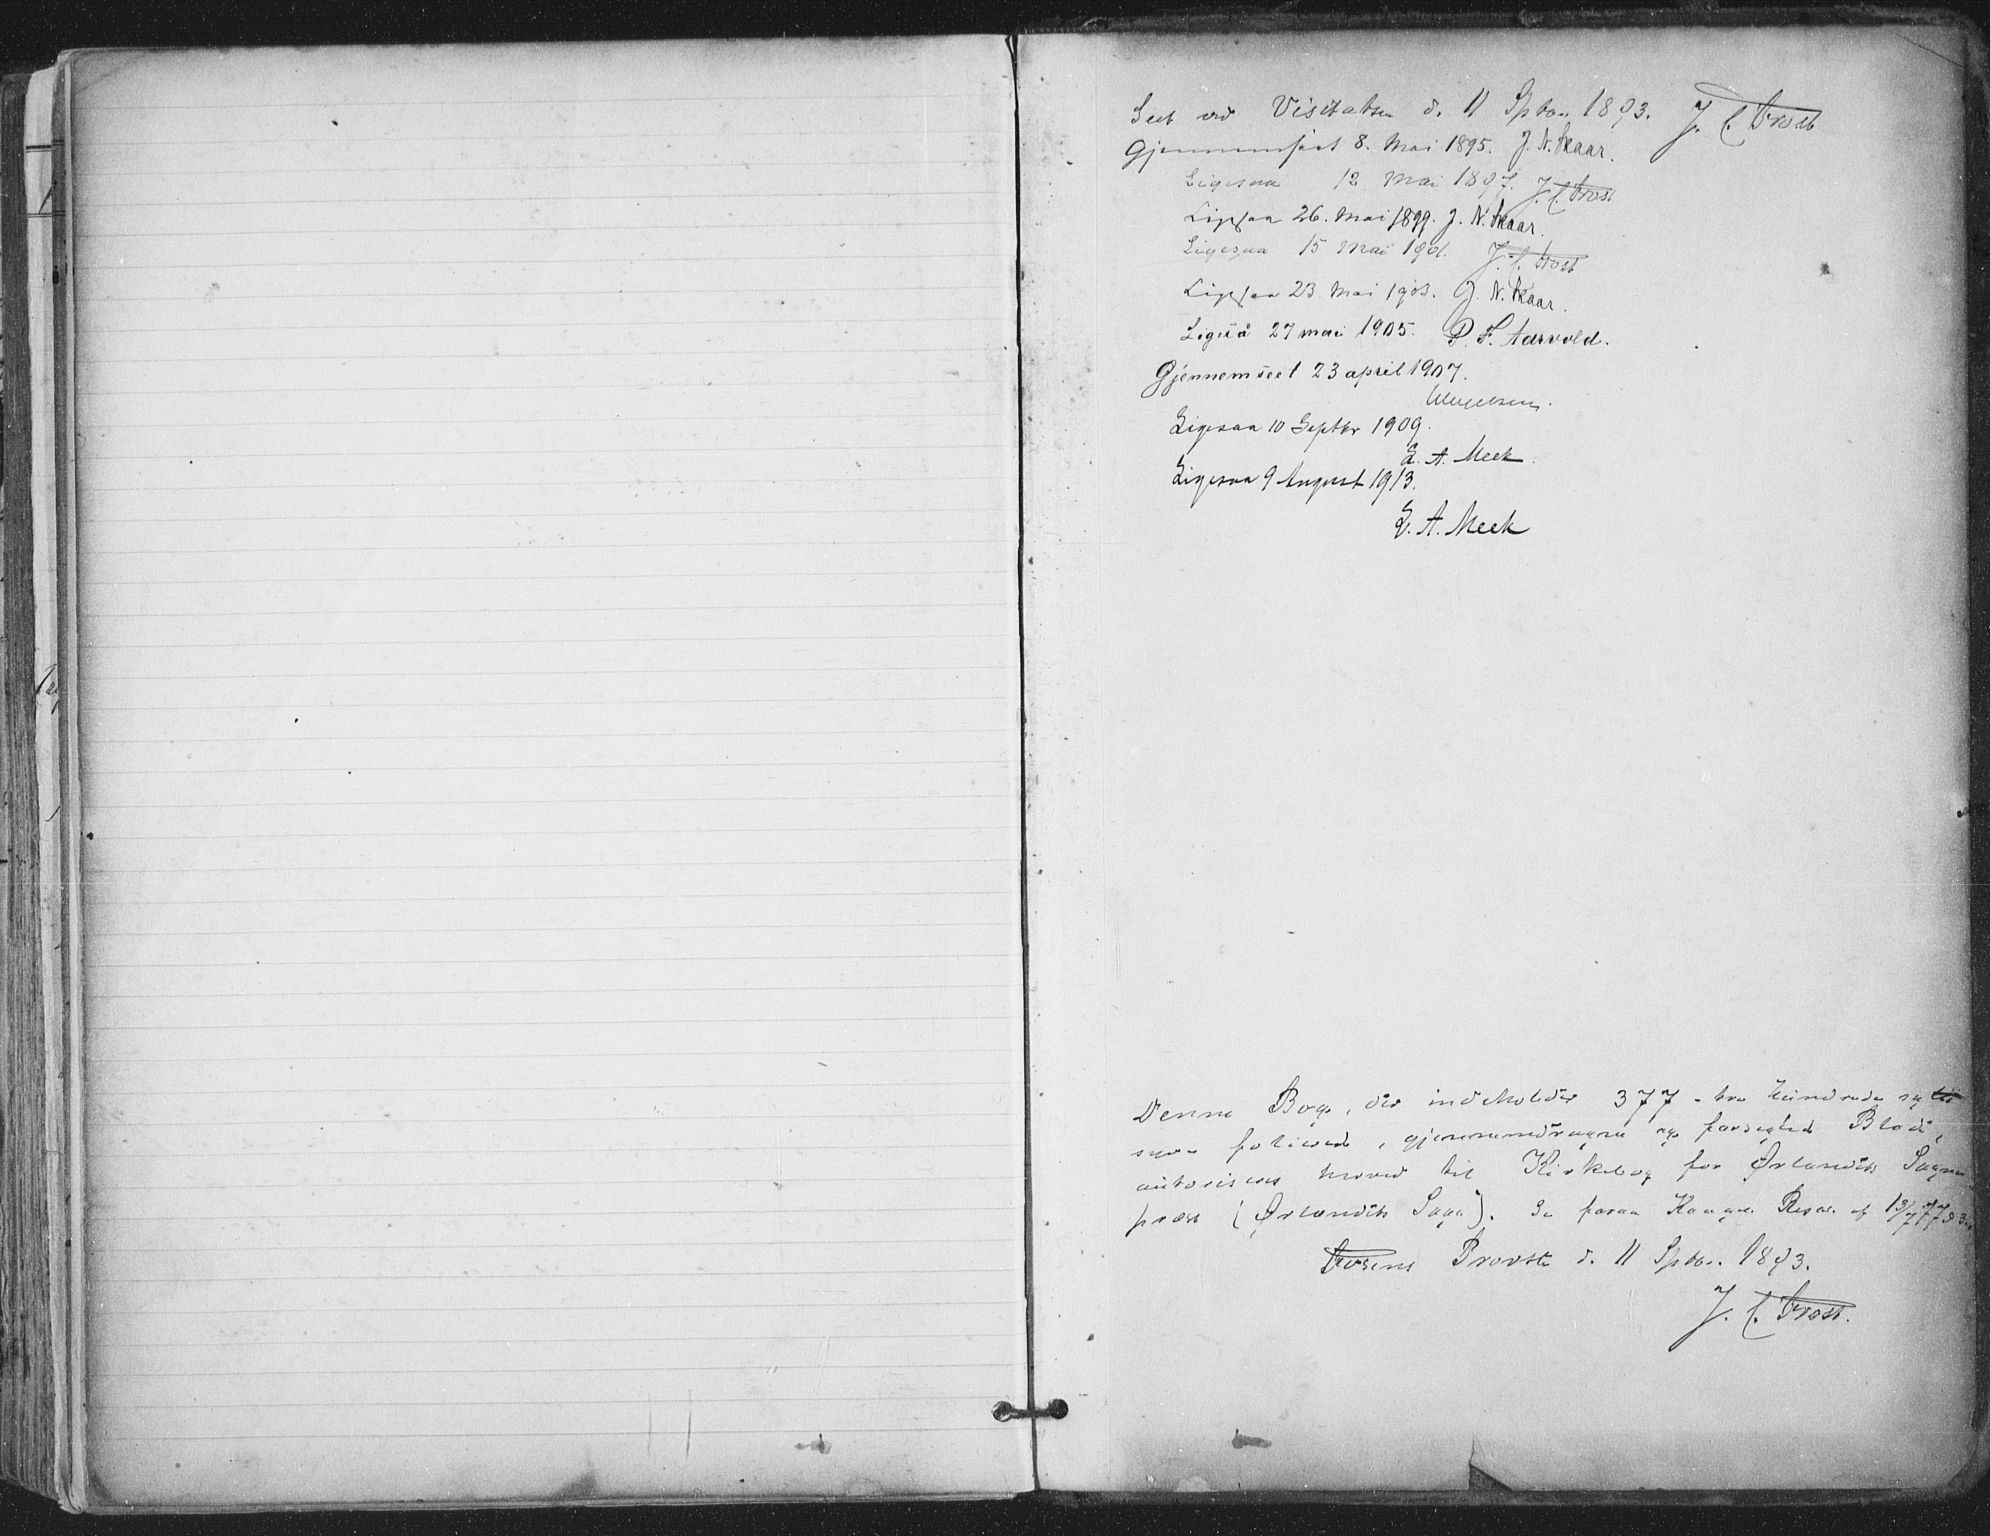 Seet ved Visitatsen d. 11 Sptbr. 1893. J. C. Frost
Gjennemseet 8. Mai 1895. J. N. Skaar.
Ligesaa 12 Mai 1897. J. C. Frost
Ligesaa 26. Mai 1899. J. N. Skaar.
Ligesaa 15 Mai 1901. J. C. Frost
Ligesaa 23 Mai 1903. J. N. Skaar.
Ligeså 27 mai 1905. P. F. Aarvold.
Gjennemseet 23 april 1907.
Ligesaa 10 Septbr 1909.
E. A. Meek.
Ligesaa 9 August 1913.
E. A. Meek
Denne Bog, der indeholder 377 - tre hundrede sytti
syv - folierede, gjennemdragne og forseglede Blade,
autoriseres herved til Kirkebog for Ørlandets Sogne
præst (Ørlandets Sogn). Se
Fosens Provsti d. 11 Sptbr. 1893.
J. C. Frost.